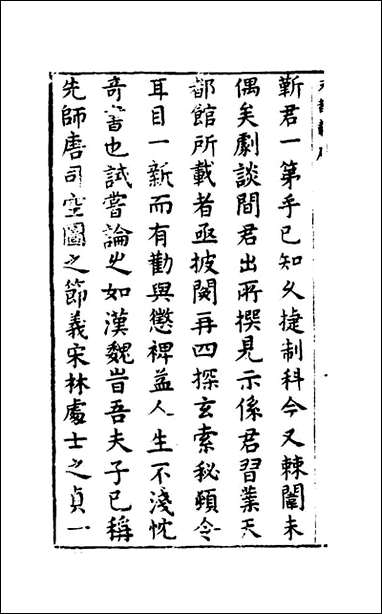 靳君一第乎已知乆捷制科今又棘闈未
偶矣劇談間君出所撰見示係君習業天
都館所載者亟披閱再四探玄索秘頓令
耳目一新而有勸與懲裨益人生不淺忱
奇書也試嘗論之如漢魏昔吾夫子已稱
先師唐司空圖之節義宋林處士之貞一